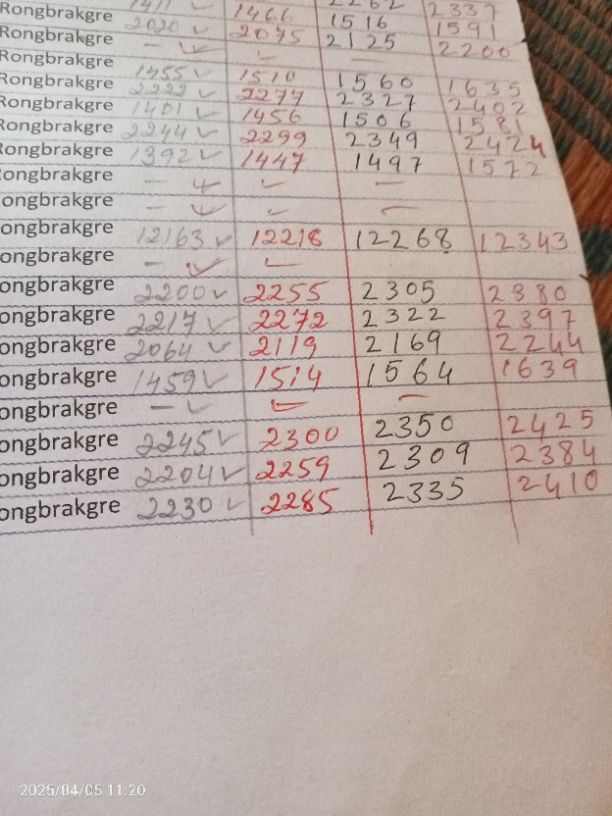 Rongbrakgre 1411 ✓ 1466 1516 1591
Rongbrakgre 2020 ✓ 2075 2125 2200
Rongbrakgre – ✓ ✓ –
Rongbrakgre 1455 ✓ 1510 1560 1635
Rongbrakgre 2222 ✓ 2277 2327 2402
Rongbrakgre 1401 ✓ 1456 1506 1581
Rongbrakgre 2244 ✓ 2299 2349 2424
Rongbrakgre 1392 ✓ 1447 1497 1572
Rongbrakgre – ✓ ✓ –
ongbrakgre – ✓ ✓ –
ongbrakgre 12163 ✓ 12218 12268 12343
ongbrakgre – ✓ ✓
ongbrakgre 2200 ✓ 2255 2305 2380
ongbrakgre 2217 ✓ 2272 2322 2397
ongbrakgre 2064 ✓ 2119 2169 2244
ongbrakgre 1459 ✓ 1514 1564 1639
ongbrakgre – ✓ ✓ –
ongbrakgre 2245 ✓ 2300 2350 2425
ongbrakgre 2204 ✓ 2259 2309 2384
ongbrakgre 2230 ✓ 2285 2335 2410
2025/04/05 11:20